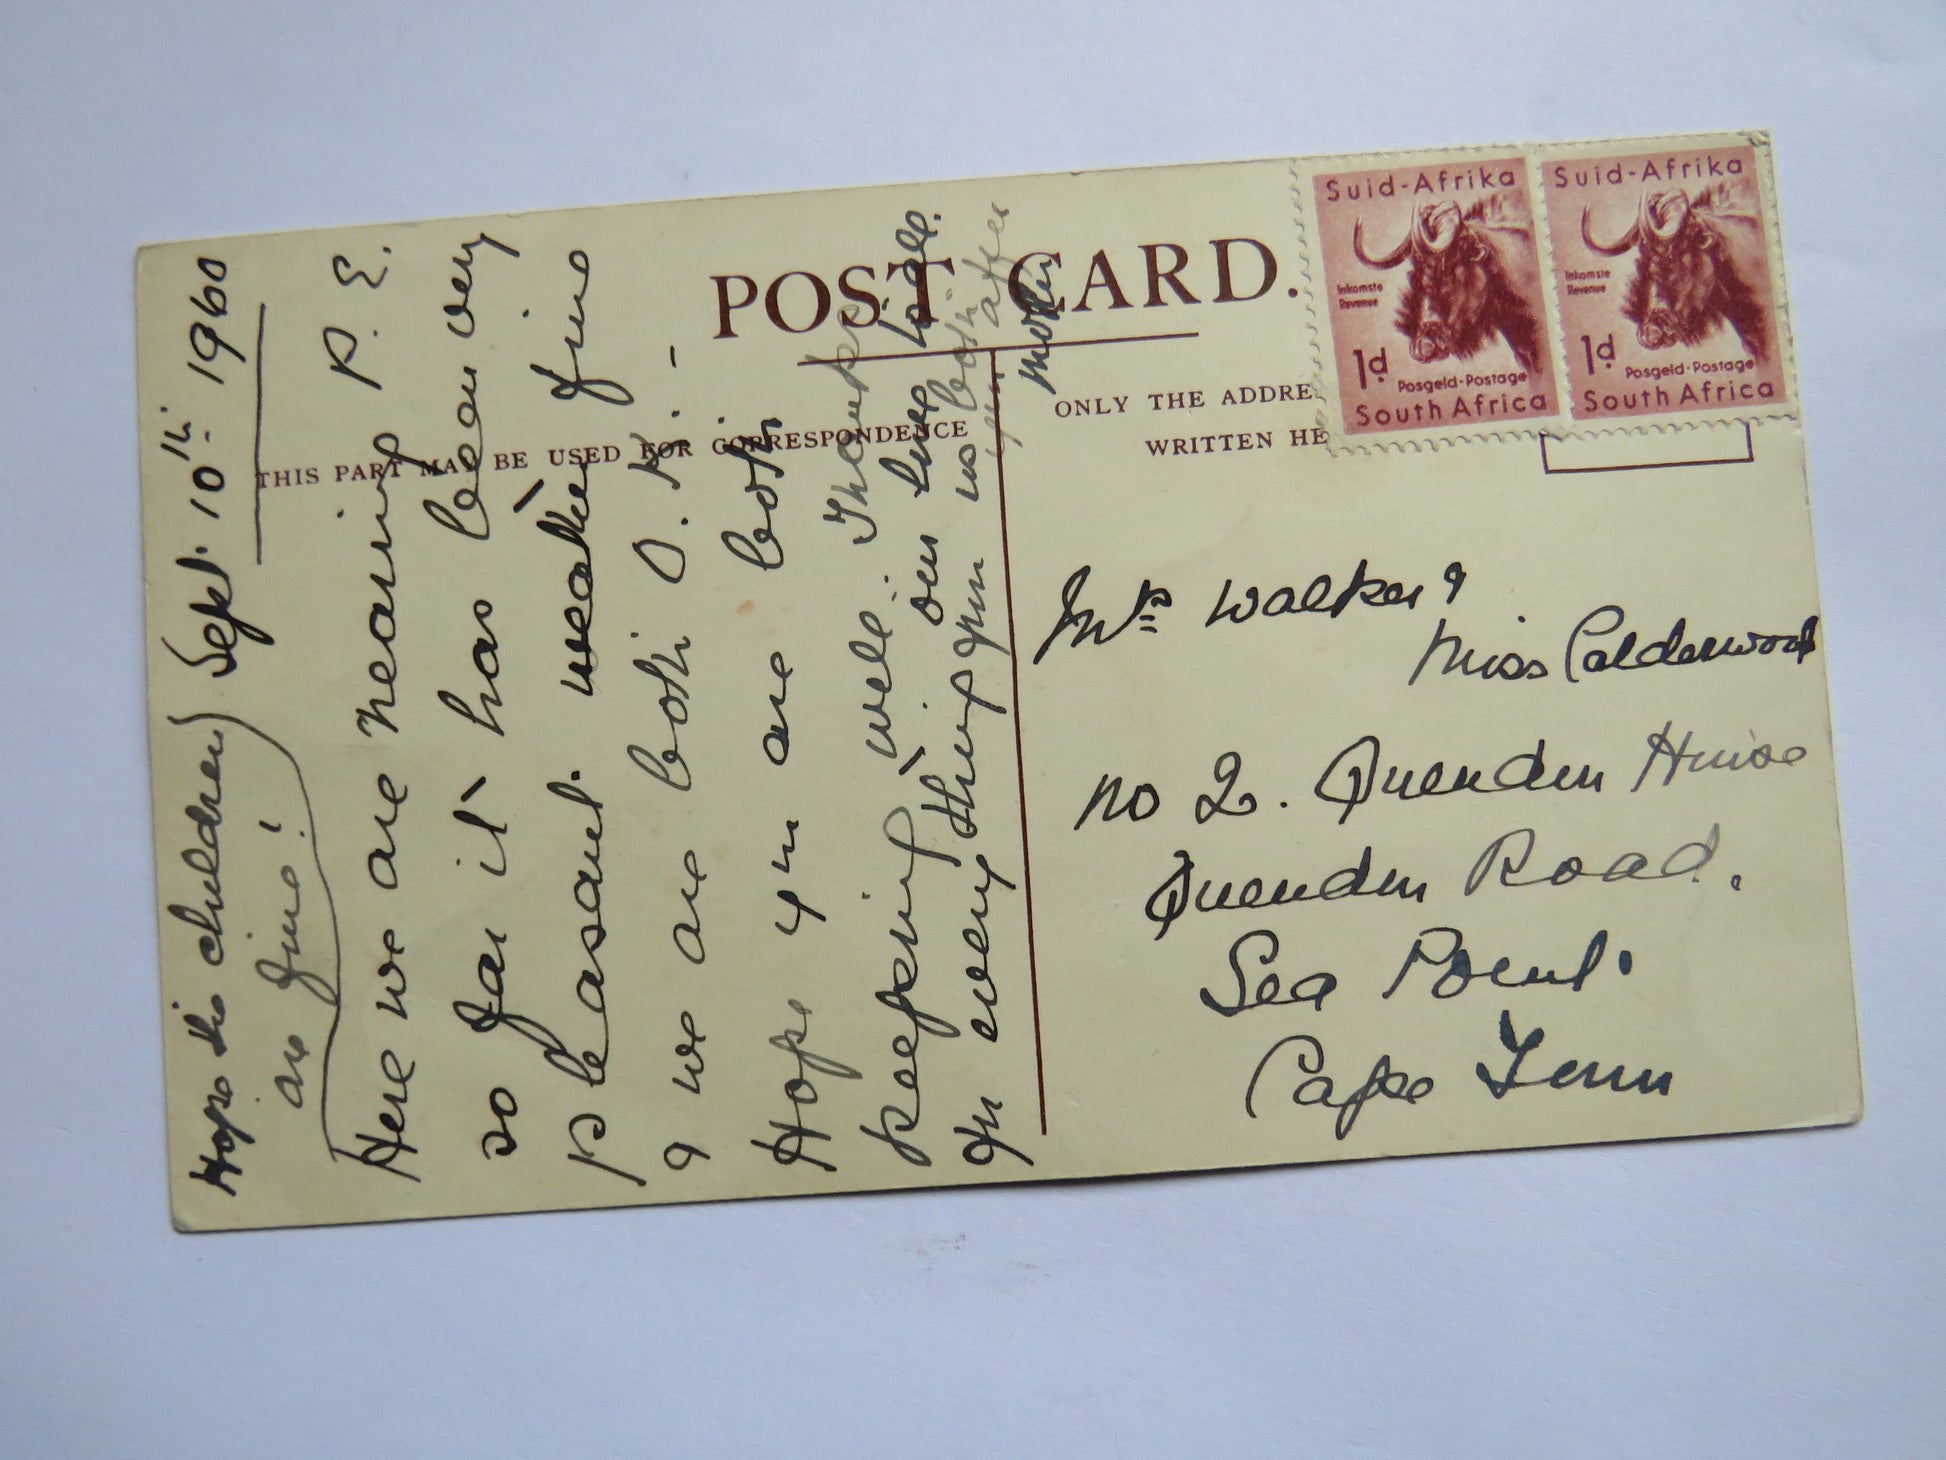 POST CARD.
THIS PART MAY BE USED FOR CORRESPONDENCE
ONLY THE ADDRE
WRITTEN HE
Suid-Afrika
Inkomste
Revenue
1d
Posgeld-Postage
South Africa
Suid-Afrika
Inkomste
Revenue
1d
Posgeld-Postage
South Africa
Sept. 10th 1960
Hope the children
are fine!
Here we are nearing P. E.
so far it has been very
pleasant. weather fine
& we are both O. K. -
Hope you are both
keeping well. Thanks
for everything
our love to all.
Mrs Walker &
Miss Calderwood
No 2. Quendon House
Quendon Road,
Sea Point.
Cape Town